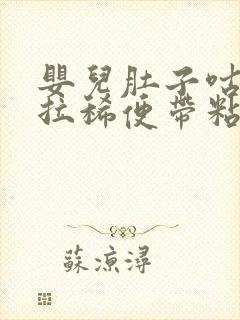 嬰兒肚子咕
拉稀便帶粘
蘇涼潯